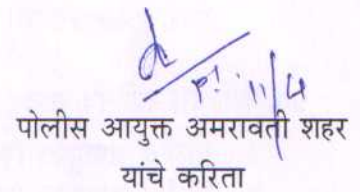 पोलीस आयुक्त अमरावती शहर
यांचे करिता